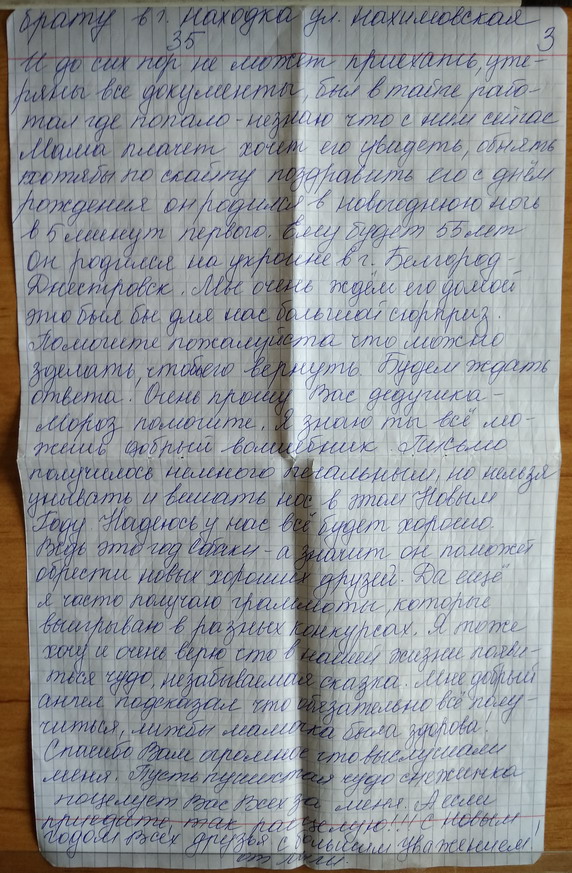 брату в г. Находка ул. Нахимовская
35
3
И до сих пор не может приехать, уте-
ряны все документы, был в тайге рабо-
тал где попало - незнаю что с ним сейчас
Мама плачет хочет его увидеть, обнять
хотябы по скайпу поздравить его с днём
рождения он родился в новогоднюю ночь
в 5 минут первого. Ему будет 55 лет
Он родился на украине в г. Белгород-
Днестровск. Мы очень ждём его домой
это был бы для нас большой сюрприз.
Помогите пожалуйста что можно
зделать, чтобы его вернуть. Будем ждать
ответа! Очень прошу Вас дедушка-
Мороз помогите. Я знаю ты всё мо-
жешь добрый волшебник Письмо
получилось немного печальным, но нельзя
унывать и вешать нос в этом Новым
Году. Надеюсь у нас всё будет хорошо.
Ведь это год Собаки - а значит он поможет
обрести новых хороших друзей. Да ещё
я часто получаю граммоты, которые
выигрываю в разных конкурсах. Я тоже
хочу и очень верю что в нашей жизни появи-
тся чудо, незабываемая сказка. Мне добрый
ангел подсказал что обязательно всё полу-
читься, лижбы мамочка была здорова!
Спасибо Вам огромное что выслушали
меня. Пусть пушистая чудо снежинка
поцелует Вас Всех за меня. А если
приедите, так расцелую!!! С Новым
Годом Всех друзья с большим уважением!
от